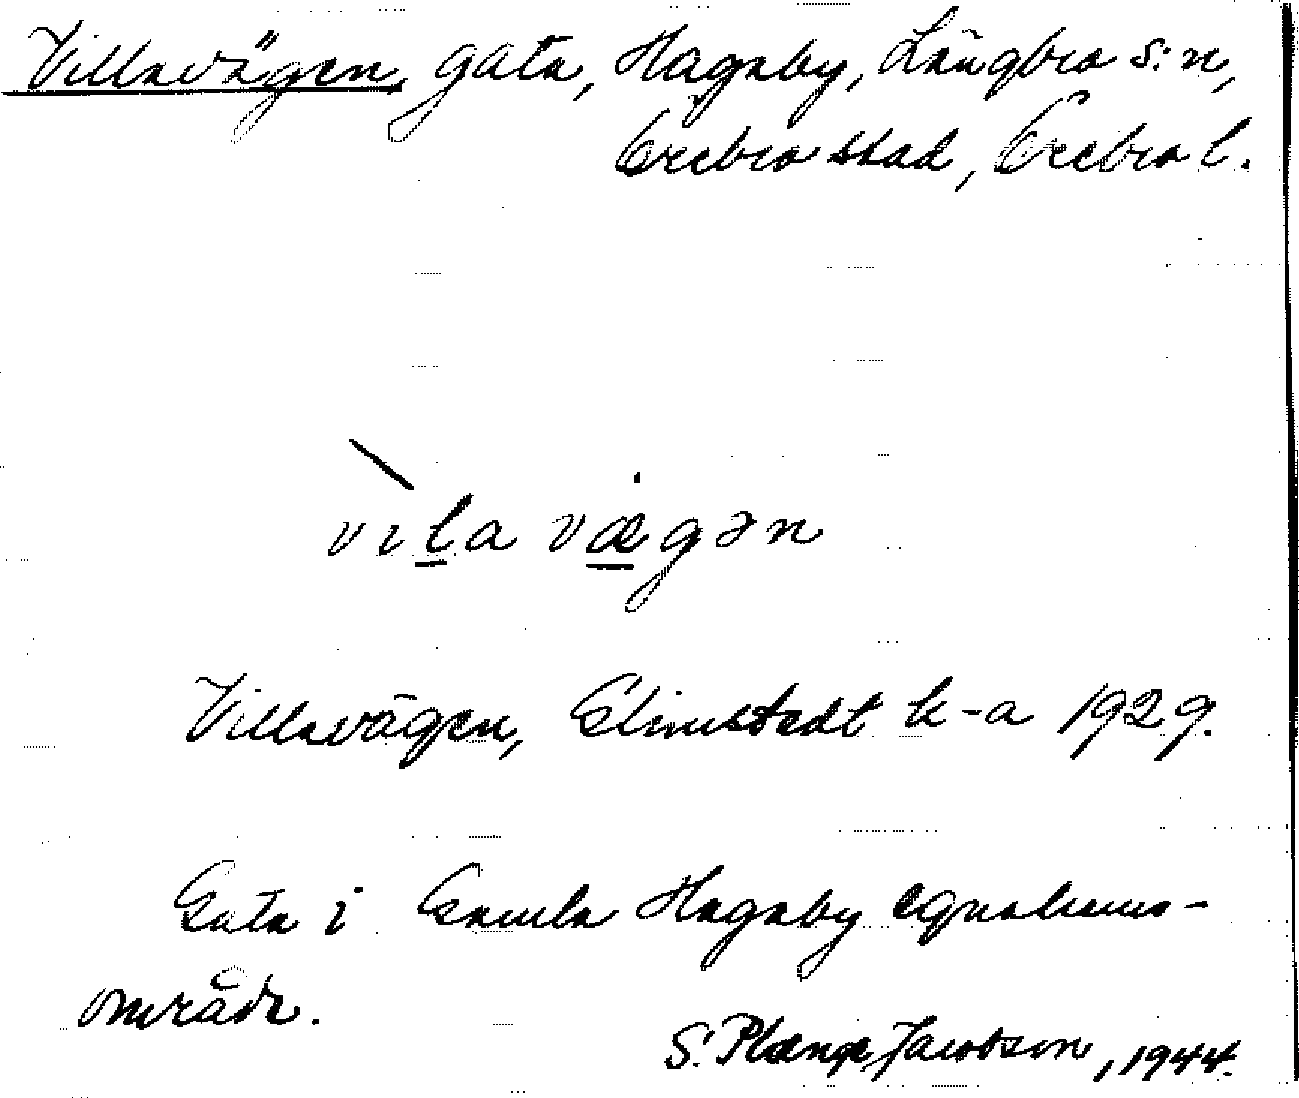 Villavägen, gata, Hagaby, Längbro s:n,
Örebro stad, Örebro l.
vıla vægən
Villavägen, Elmstedt k-a 1929.
Gata i Gamla Hagaby egnahems-
område.
S. Jacobson, 1944.